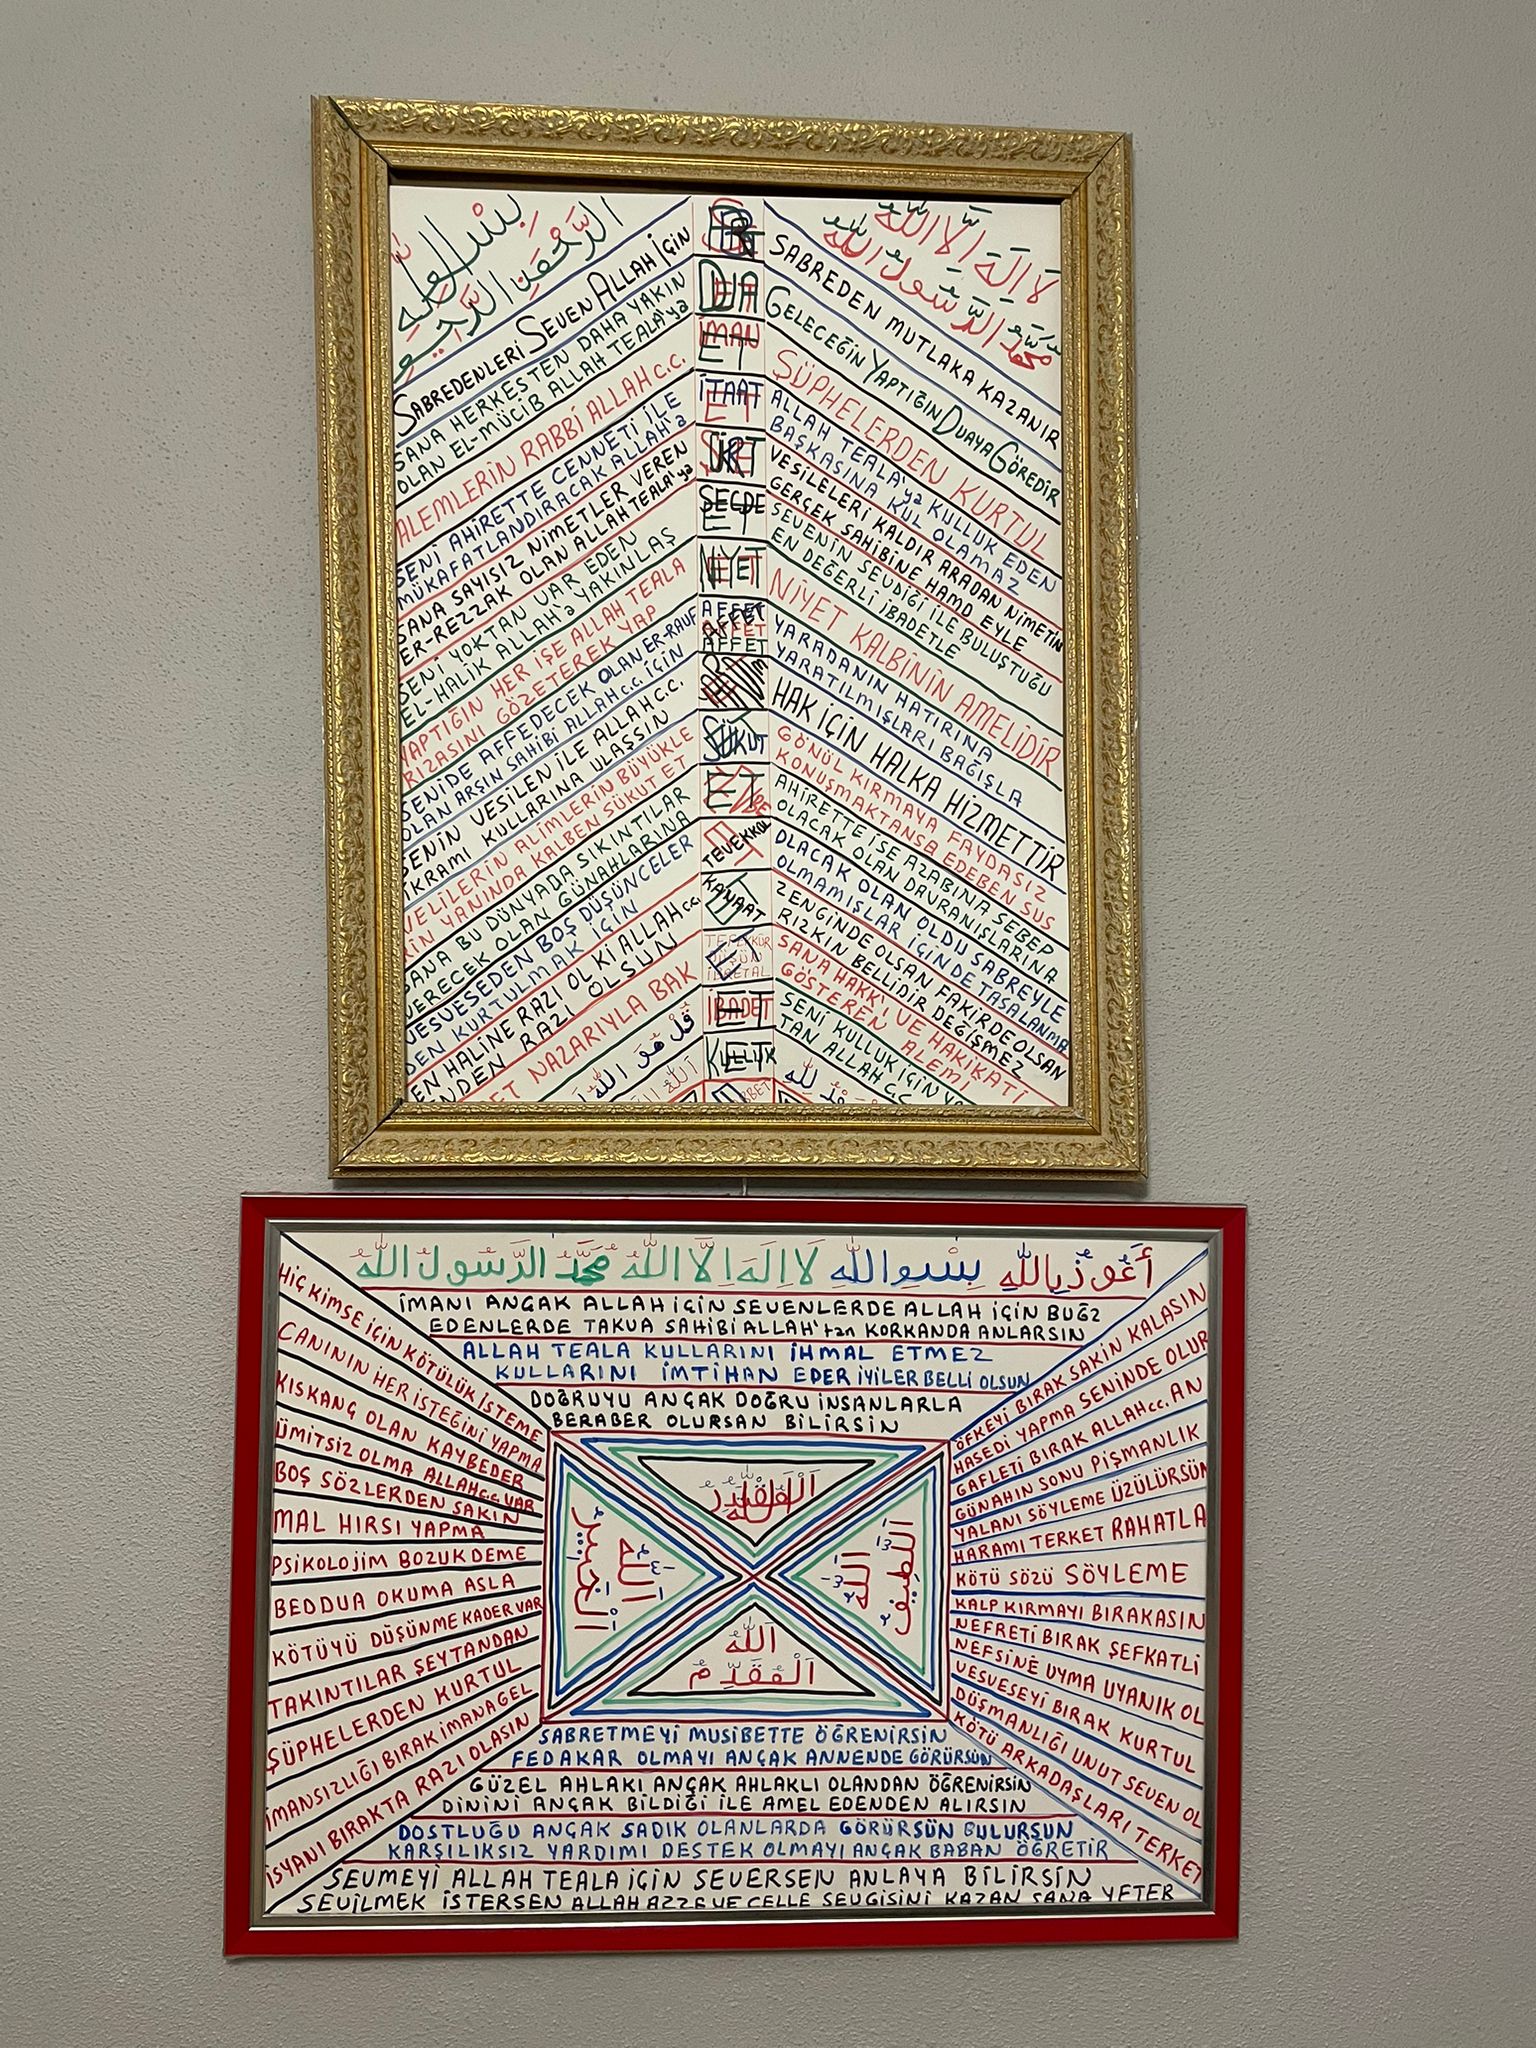 بِسْمِ اللّٰهِ
الرَّحْمٰنِ الرَّحِيمِ
SABREDENLERİ SEVEN ALLAH İÇİN
SANA HERKESTEN DAHA YAKIN
OLAN EL-MÜCİB ALLAH TEALA'ya
ALEMLERİN RABBİ ALLAH C.C.
SENİ AHİRETTE CENNETİ İLE
MÜKAFATLANDIRACAK ALLAH'a
SANA SAYISIZ NİMETLER VEREN
ER-REZZAK OLAN ALLAH TEALA'ya
SENİ YOKTAN VAR EDEN
EL-HALİK ALLAH'a YAKINLAŞ
YAPTIĞIN HER İŞE ALLAH TEALA
RIZASINI GÖZETEREK YAP
SENİDE AFFEDECEK OLAN ER-RAUF
OLAN ARŞIN SAHİBİ ALLAH C.C. İÇİN
SENİN VESİLEN İLE ALLAH C.C.
İKRAMI KULLARINA ULAŞSIN
VELİLERİN ALİMLERİN BÜYÜKLE
RİN YANINDA KALBEN SÜKUT ET
SANA BU DÜNYADA SIKINTILAR
VERECEK OLAN GÜNAHLARINA
VESVESEDEN BOŞ DÜŞÜNCELER
DEN KURTULMAK İÇİN
EN HALİNE RAZI OL Kİ ALLAH C.C.
ENDEN RAZI OLSUN
ET NAZARIYLA BAK
قُلْ هُوَ اللّٰهُ
DUA
ET
İMAN
ET
İTAAT
ET
SECDE
ET
NİYET
ET
AFFET
AFFET
AFFET
SÜKUT
ET
TEVEKKÜL
ET
KANAAT
ET
TEFEKKÜR
DÜŞÜN
İBRET AL
ET
İBADET
ET
KULLUK
ET
لَا اِلٰهَ اِلَّا اللّٰهُ
مُحَمَّدُ الرَّسُولُ اللّٰهُ
SABREDEN MUTLAKA KAZANIR
GELECEĞİN YAPTIĞIN DUAYA GÖREDİR
ŞÜPHELERDEN KURTUL
ALLAH TEALA'ya KULLUK EDEN
BAŞKASINA KUL OLAMAZ
VESİLELERİ KALDIR ARADAN NİMETİN
GERÇEK SAHİBİNE HAMD EYLE
SEVENİN SEVDİĞİ İLE BULUŞTUĞU
EN DEĞERLİ İBADETLE
NİYET KALBİNİN AMELİDİR
YARADANIN HATIRINA
YARATILMIŞLARI BAĞIŞLA
HAK İÇİN HALKA HİZMETTİR
GÖNÜL KIRMAYA FAYDASIZ
KONUŞMAKTANSA EDEBEN SUS
AHİRETTE İSE AZABINA SEBEP
OLACAK OLAN DAVRANIŞLARINA
OLACAK OLAN OLDU SABREYLE
OLMAMIŞLAR İÇİNDE TASALANMA
ZENGİNDE OLSAN FAKİRDE OLSAN
RIZKIN BELLİDİR DEĞİŞMEZ
SANA HAKK'I VE HAKİKATİ
GÖSTEREN ALEMİ
SENİ KULLUK İÇİN YA
TAN ALLAH C.C
أَعُوذُ بِاللّٰهِ بِسْمِ اللّٰهِ لَا اِلٰهَ اِلَّا اللّٰهُ مُحَمَّدُ الرَّسُولُ اللّٰهُ
İMANI ANÇAK ALLAH İÇİN SEVENLERDE ALLAH İÇİN BUĞZ
EDENLERDE TAKVA SAHİBİ ALLAH'tan KORKANDA ANLARSIN
ALLAH TEALA KULLARINI İHMAL ETMEZ
KULLARINI İMTİHAN EDER İYİLER BELLİ OLSUN
DOĞRUYU ANÇAK DOĞRU İNSANLARLA
BERABER OLURSAN BİLİRSİN
HİÇ KİMSE İÇİN KÖTÜLÜK İSTEME
CANININ HER İSTEĞİNİ YAPMA
KISKANÇ OLAN KAYBEDER
ÜMİTSİZ OLMA ALLAH c.c. VAR
BOŞ SÖZLERDEN SAKIN
MAL HIRSI YAPMA
PSİKOLOJİM BOZUK DEME
BEDDUA OKUMA ASLA
KÖTÜYÜ DÜŞÜNME KADER VAR
TAKINTILAR ŞEYTANDAN
ŞÜPHELERDEN KURTUL
İMANSIZLIĞI BIRAK İMANA GEL
İSYANI BIRAKTA RAZI OLASIN
اَللّٰهُ
اَلْخَبِيرُ
اَللّٰهُ
اَلْمُقَدِّمُ
اَللَّطِيفُ
اَللّٰهُ
ÖFKEYİ BIRAK SAKİN KALASIN
HASEDİ YAPMA SENİNDE OLUR
GAFLETİ BIRAK ALLAH cc. AN
GÜNAHIN SONU PİŞMANLIK
YALANI SÖYLEME ÜZÜLÜRSÜN
HARAMI TERKET RAHATLA
KÖTÜ SÖZÜ SÖYLEME
KALP KIRMAYI BIRAKASIN
NEFRETİ BIRAK ŞEFKATLİ
NEFSİNE UYMA UYANIK OL
VESVESEYİ BIRAK KURTUL
DÜŞMANLIĞI UNUT SEVEN OL
KÖTÜ ARKADAŞLARI TERKET
SABRETMEYİ MUSİBETTE ÖĞRENİRSİN
FEDAKAR OLMAYI ANÇAK ANNENDE GÖRÜRSÜN
GÜZEL AHLAKI ANÇAK AHLAKLI OLANDAN ÖĞRENİRSİN
DİNİNİ ANÇAK BİLDİĞİ İLE AMEL EDENDEN ALIRSIN
DOSTLUĞU ANÇAK SADIK OLANLARDA GÖRÜRSÜN BULURSUN
KARŞILIKSIZ YARDIMI DESTEK OLMAYI ANÇAK BABAN ÖĞRETİR
SEVMEYİ ALLAH TEALA İÇİN SEVERSEN ANLAYA BİLİRSİN
SEVİLMEK İSTERSEN ALLAH AZZE VE CELLE SEVGİSİNİ KAZAN SANA YETER